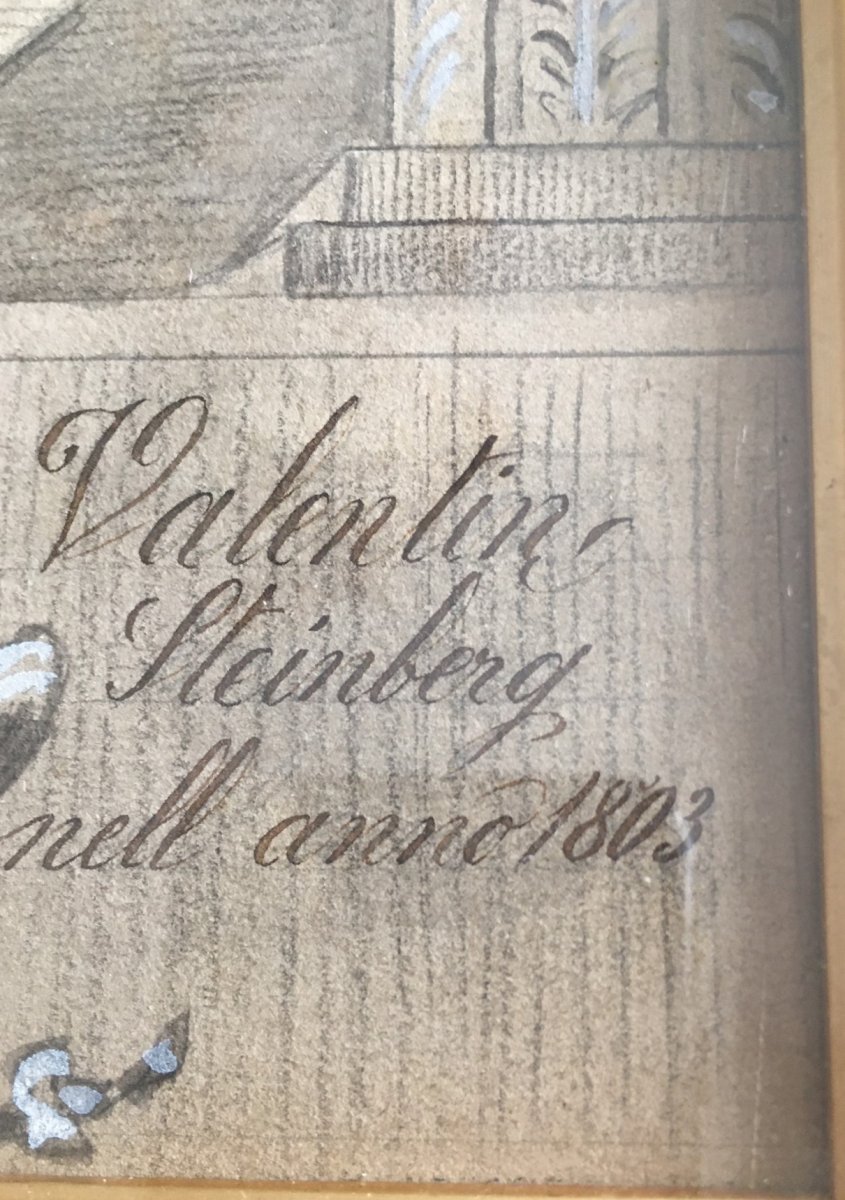 Valentin
Steinberg
nell anno 1803